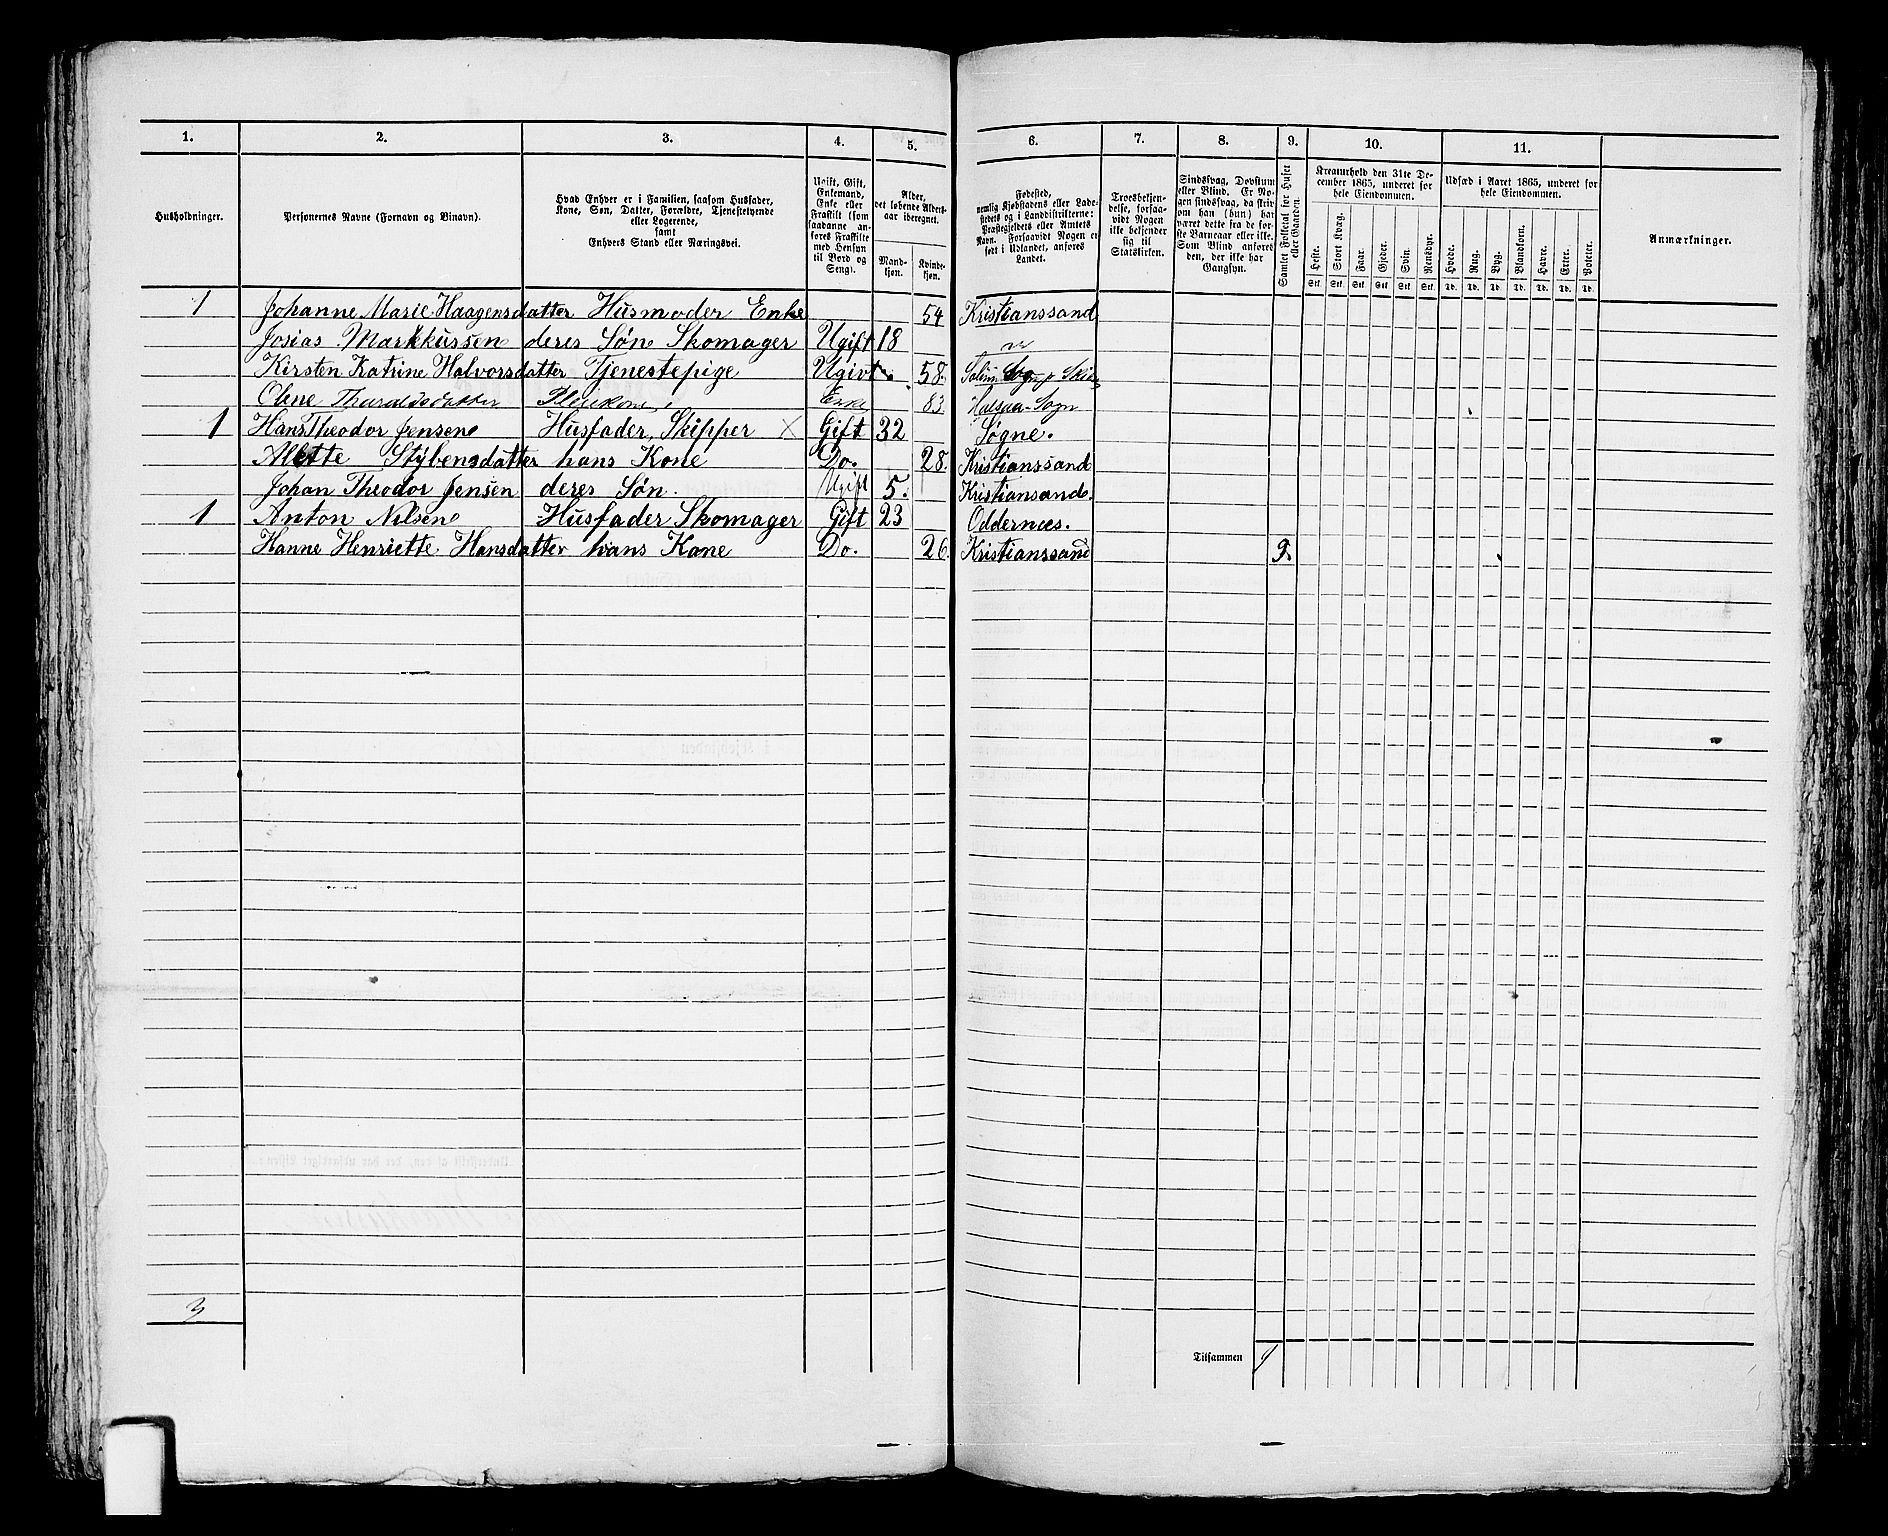 1. 2. 3. 4. 5. 6. 7. 8. 9. 10. 11.
Husholdninger.
Personernes Navne (Fornavn og Binavn).
Hvad Enhver er i Familien, saasom Husfader,
Kone, Søn, Datter, Forældre, Tjenestetyende
eller Logerende,
samt
Enhvers Stand eller Næringsvei.
Ugift, Gift,
Enkemand,
Enke eller
Fraskilt (som
saadanne an-
føres Fraskilte
med Hensyn
til Bord og
Seng).
Alder,
det løbende Alders-
aar iberegnet.
Mand-
kjøn.
Kvinde-
kjøn.
Fødested,
nemlig Kjøbstadens eller Lade-
stedets og i Landdistrikterne:
Præstegjeldets eller Amtets
Navn. Forsaavidt Nogen er
født i Udlandet, anføres
Landet.
Troesbekjen-
delse, forsaa-
vidt Nogen
ikke bekjender
sig til
Statskirken.
Sindssvag, Døvstum
eller Blind. Er No-
gen sindssvag, da skriv
om han (hun) har
været dette fra de før-
ste Barneaar eller ikke.
Som Blind anføres
den, der ikke har
Gangsyn.
Samlet Folketal for Huset
eller Gaarden.
Kreaturhold den 31te De-
cember 1865, underet for
hele Eiendommen.
Heste. Stort Kvæg. Faar. Gjeder. Svin. Rensdyr.
Stk. Stk. Stk. Stk. Stk. Stk.
Udsæd i Aaret 1865, underet for
hele Eiendommen.
Hvede. Rug. Byg. Blandkorn. Havre. Erter. Poteter.
Td. Td. Td. Td. Td. Td. Td.
Anmærkninger.
1 Johanne Marie Haagensdatter Husmoder Enke 54 Kristianssand
Josias Markkussen deres Søn Skomager Ugift 18
Kirsten Katrine Halvorsdatter Tjenestepige Ugivt 58. Sogn
Olene Tharaldsdatter Enke 83. Sogn
1 Hans Theodor Jensen Husfader, Skipper X Gift 32 Søgne.
Alette Stybensdatter hans Kone Do. 28. Kristianssand
Johan Theodor Jensen deres Søn. Ugift 5. Kristiansand.
1 Anton Nilsen Husfader Skomager Gift 23 Oddernæs.
Hanne Henriette Hansdatter hans Kone Do. 26 Kristianssand 9.
3
Tilsammen 9